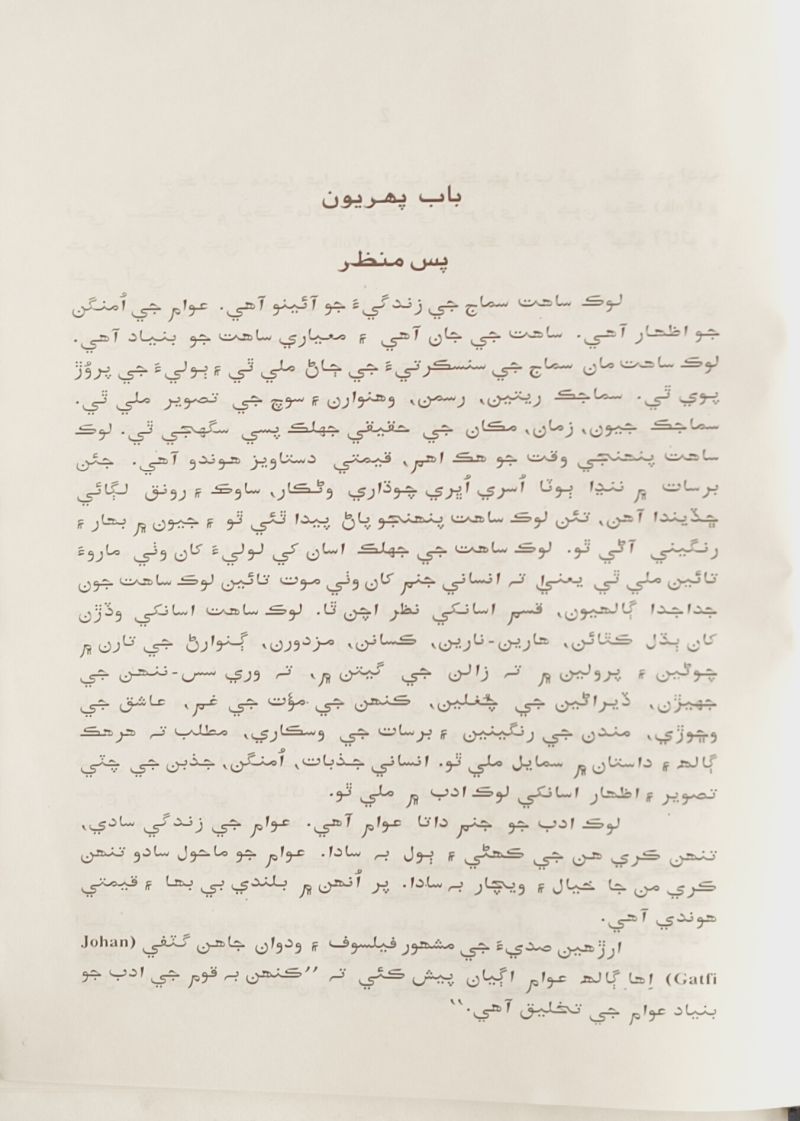 باب پهريون
پس منظر
لوڪ ساهت سماج جي زندگيءَ جو آئينو آهي. عوام جي اُمنگن
جو اظهار آهي. ساهت جي جان آهي ۽ معياري ساهت جو بنياد آهي.
لوڪ ساهت مان سماج جي سنسڪرتيءَ جي ڄاڻ ملي ٿي ۽ ٻوليءَ جي پروُڙ
پوي ٿي. سماجڪ ريتين، رسمن، وهنوارن ۽ سوچ جي تصوير ملي ٿي.
سماجڪ جيون، زمان، مڪان جي حقيقي جهلڪ پسي سگهجي ٿي. لوڪ
ساهت پنهنجي وقت جو هڪ اهم، قيمتي دستاويز هوندو آهي. جئن
برسات ۾ ننڍا ٻوٽا اُسري اُڀري چوڌاري وڻڪار، ساوڪ ۽ رونق لڳائي
ڇڏيندا آهن، تئن لوڪ ساهت پنهنجو پاڻ پيدا ٿئي ٿو ۽ جيون ۾ بهار ۽
رنگيني آڻي ٿو. لوڪ ساهت جي جهلڪ اسان کي لوليءَ کان وٺي ماروءَ
تائين ملي ٿي يعنيٰ ته انساني جنم کان وٺي موت تائين لوڪ ساهت جون
جداجدا ڳالهيون، قسم اسانکي نظر اچن ٿا. لوڪ ساهت اسانکي وڏڙن
کان ٻڌل ڪٿائن، هارين-نارين، ڪسانن، مزدورن، ڳنوارڻ جي تارن ۾
چوڻين ۽ پرولين ۾ ته زالن جي گيتن ۾، ته وري سس-ننهن جي
جهيڙن، ڏيراڻين جي چُغلين، ڪنهن جي مؤت جي غم، عاشق جي
وڇوڙي، مندن جي رنگينين ۽ برسات جي وسڪاري، مطلب ته هرهڪ
ڳالهه ۽ داستان ۾ سمايل ملي ٿو. انساني جذبات، اُمنگن، جذبن جي چٽي
تصوير ۽ اظهار اسانکي لوڪ ادب ۾ ملي ٿو.
لوڪ ادب جو جنم داتا عوام آهي. عوام جي زندگي سادي،
تنهن ڪري هن جي ڪهڻي ۽ ٻول به سادا. عوام جو ماحول سادو تنهن
ڪري من جا خيال ۽ ويچار به سادا. پر اُنهن ۾ بلندي بي بها ۽ قيمتي
هوندي آهي.
ارڙهين صديءَ جي مشهور فيلسوف ۽ ودوان جاهن گتفي (Johan
Gatfi) اِها ڳالهه عوام اڳيان پيش ڪئي ته ’’ڪنهن به قوم جي ادب جو
بنياد عوام جي تخليق آهي.‘‘